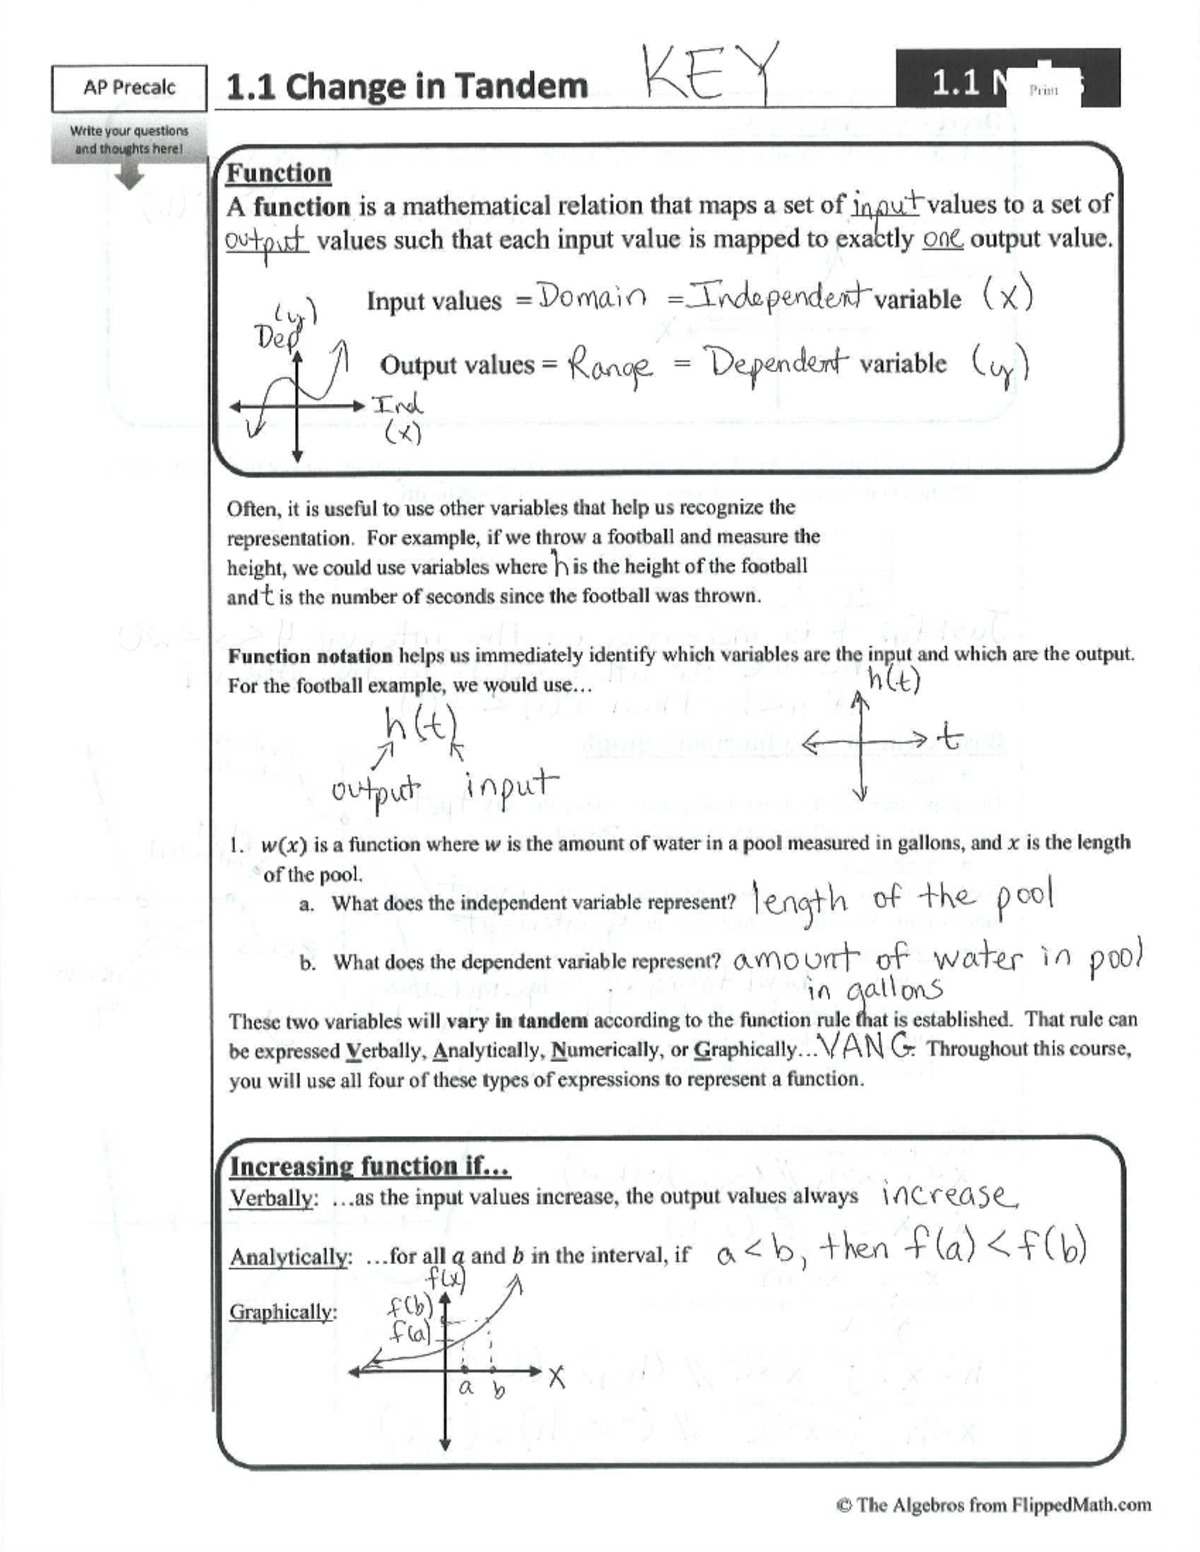 AP Precalc
1.1 Change in Tandem KEY
1.1 N s
Print
Write your questions
and thoughts here!
Function
A function is a mathematical relation that maps a set of input values to a set of
output values such that each input value is mapped to exactly one output value.
Input values = Domain = Independent variable (x)
(y)
Dep
Output values = Range = Dependent variable (y)
Ind
(x)
Often, it is useful to use other variables that help us recognize the
representation. For example, if we throw a football and measure the
height, we could use variables where h is the height of the football
and t is the number of seconds since the football was thrown.
Function notation helps us immediately identify which variables are the input and which are the output.
For the football example, we would use...
h(t)
h(t)
t
output input
1. w(x) is a function where w is the amount of water in a pool measured in gallons, and x is the length
of the pool.
a. What does the independent variable represent? length of the pool
b. What does the dependent variable represent? amount of water in pool
in gallons
These two variables will vary in tandem according to the function rule that is established. That rule can
be expressed Verbally, Analytically, Numerically, or Graphically...VANG. Throughout this course,
you will use all four of these types of expressions to represent a function.
Increasing function if...
Verbally: ...as the input values increase, the output values always increase
Analytically: ...for all a and b in the interval, if a < b, then f(a) < f(b)
f(x)
Graphically:
f(b)
f(a)
x
a b
© The Algebros from FlippedMath.com